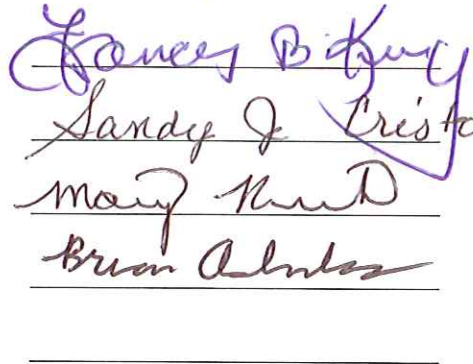 Frances B. King
Sandy J Cristo
Mary
Brian